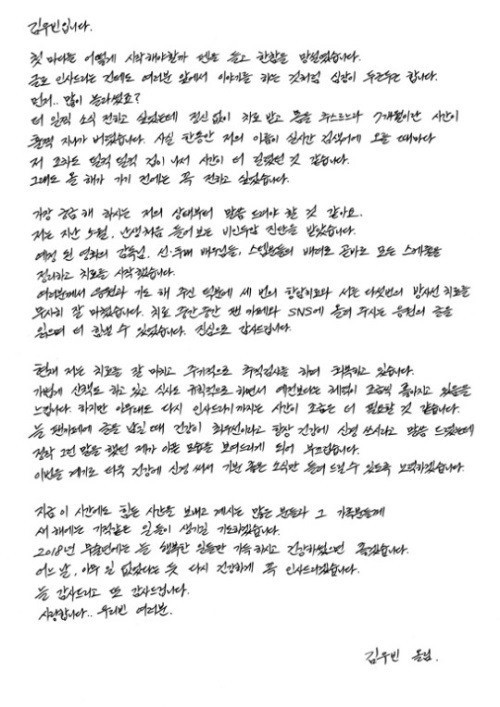 김우빈입니다.
첫 마디는 어떻게 시작해야할까 펜을 들고 한참을 망설였습니다.
글로 인사드리는 건데도 여러분 앞에서 이야기를 하는 것처럼 심장이 두근두근 합니다.
먼저.. 많이 놀라셨죠?
더 일찍 소식 전하고 싶었는데 정신 없이 치료 받고 몸을 추스르느라 7개월이란 시간이
훌쩍 지나가 버렸습니다. 사실 한동안 저의 이름이 실시간 검색어에 오를 때마다
저 조차도 덜컥 덜컥 겁이 나서 시간이 더 걸렸던 것 같습니다.
그래도 올 해가 가기 전에는 꼭 전하고 싶었습니다.
가장 궁금해 하시는 저의 상태부터 말씀 드려야 할 것 같아요.
저는 지난 5월, 난생처음 들어보는 비인두암 진단을 받았습니다.
예정 된 영화의 감독님, 선·후배 배우님들, 스텝분들의 배려로 곧바로 모든 스케줄을
정리하고 치료를 시작했습니다.
여러분께서 응원과 기도 해 주신 덕분에 세 번의 항암치료와 서른 다섯번의 방사선 치료를
무사히 잘 마쳤습니다. 치료 중간중간 팬 카페와 SNS에 올려 주시는 응원의 글을
읽으며 더 힘낼 수 있었습니다. 진심으로 감사드립니다.
현재 저는 치료를 잘 마치고 주기적으로 추적검사를 하며 회복하고 있습니다.
가볍게 산책도 하고 있고 식사도 규칙적으로 하면서 예전보다는 체력이 조금씩 좋아지고 있음을
느낍니다. 하지만 아무래도 다시 인사드리기까지는 시간이 조금은 더 필요할 것 같습니다.
늘 팬카페에 글을 남길 때 건강이 최우선이라고 항상 건강에 신경 쓰시라고 말씀 드렸었는데
정작 그런 말을 했던 제가 아픈 모습을 보여드리게 되어 부끄럽습니다.
이번을 계기로 더욱 건강에 신경 써서 기쁘고 좋은 소식만 들려 드릴 수 있도록 노력하겠습니다.
지금 이 시간에도 힘든 시간을 보내고 계시는 많은 분들과 그 가족분들께
새 해에는 기적같은 일들이 생기길 기도하겠습니다.
2018년 무술년에는 늘 행복한 일들만 가득 하시고 건강하셨으면 좋겠습니다.
어느 날, 아무 일 없었다는 듯 다시 건강하게 꼭 인사드리겠습니다.
늘 감사드리고 또 감사드립니다.
사랑합니다.. 우리빈 여러분.
김우빈 올림.